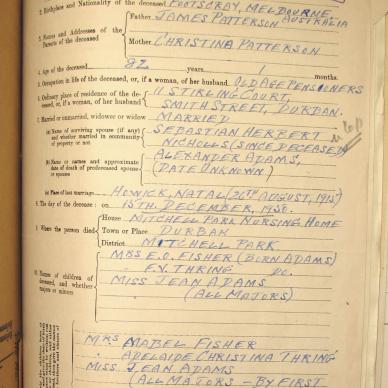 2. Birthplace and Nationality of the deceased FOOTSCRAY, MELBOURNE,
AUSTRALIA
3. Names and Addresses of the Parents of the deceased
Father JAMES PATTERSON
Mother CHRISTINA PATTERSON
4. Age of the deceased 82 years 1 months.
5. Occupation in life of the deceased, or, if a woman, of her husband OLD AGE PENSIONERS
6. Ordinary place of residence of the de-
ceased, or, if a woman, of her husband
11 STIRLING COURT,
SMITH STREET, DURBAN.
7. Married or unmarried, widower or widow MARRIED
(a) Name of surviving spouse (if any)
and whether married in community
of property or not
SEBASTIAN HERBERT
NICHOLLS (SINCE DECEASED)
(b) Name or names and approximate
date of death of predeceased spouse
or spouses
ALEXANDER ADAMS,
(DATE UNKNOWN)
(c) Place of last marriage HOWICK, NATAL (20TH AUGUST, 1915)
8. The day of the decease: on 15TH DECEMBER, 1950.
9. Where the person died
House MITCHELL PARK NURSING HOME
Town or Place DURBAN
District MITCHELL PARK
10. Names of children of
deceased, and whether
majors or minors
MRS E.O. FISHER (BORN ADAMS)
F.V. THRING DO.
MISS JEAN ADAMS
(ALL MAJORS)
MRS MABEL FISHER
ADELAIDE CHRISTINA THRING
MISS JEAN ADAMS
(ALL MAJORS - BY FIRST